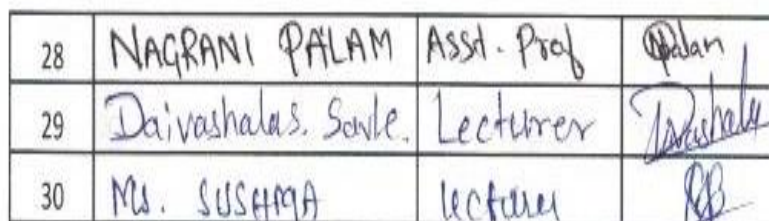 28 NAGRANI PALAM Asst. Prof Npalan
29 Daivashalas. Savle. Lecturer
30 Ms. SUSHMA lecturer